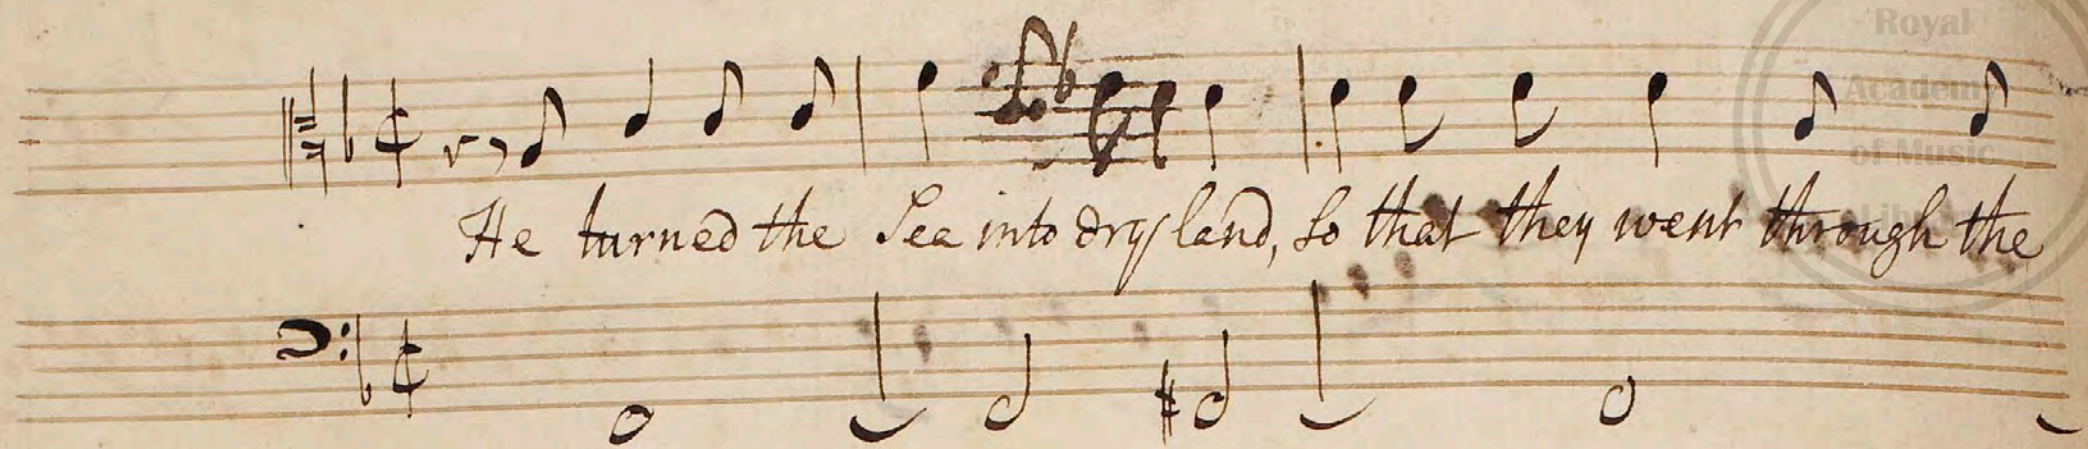 Royal
Academy
of Music
Library
He turned the Sea into dry land, so that they went through the